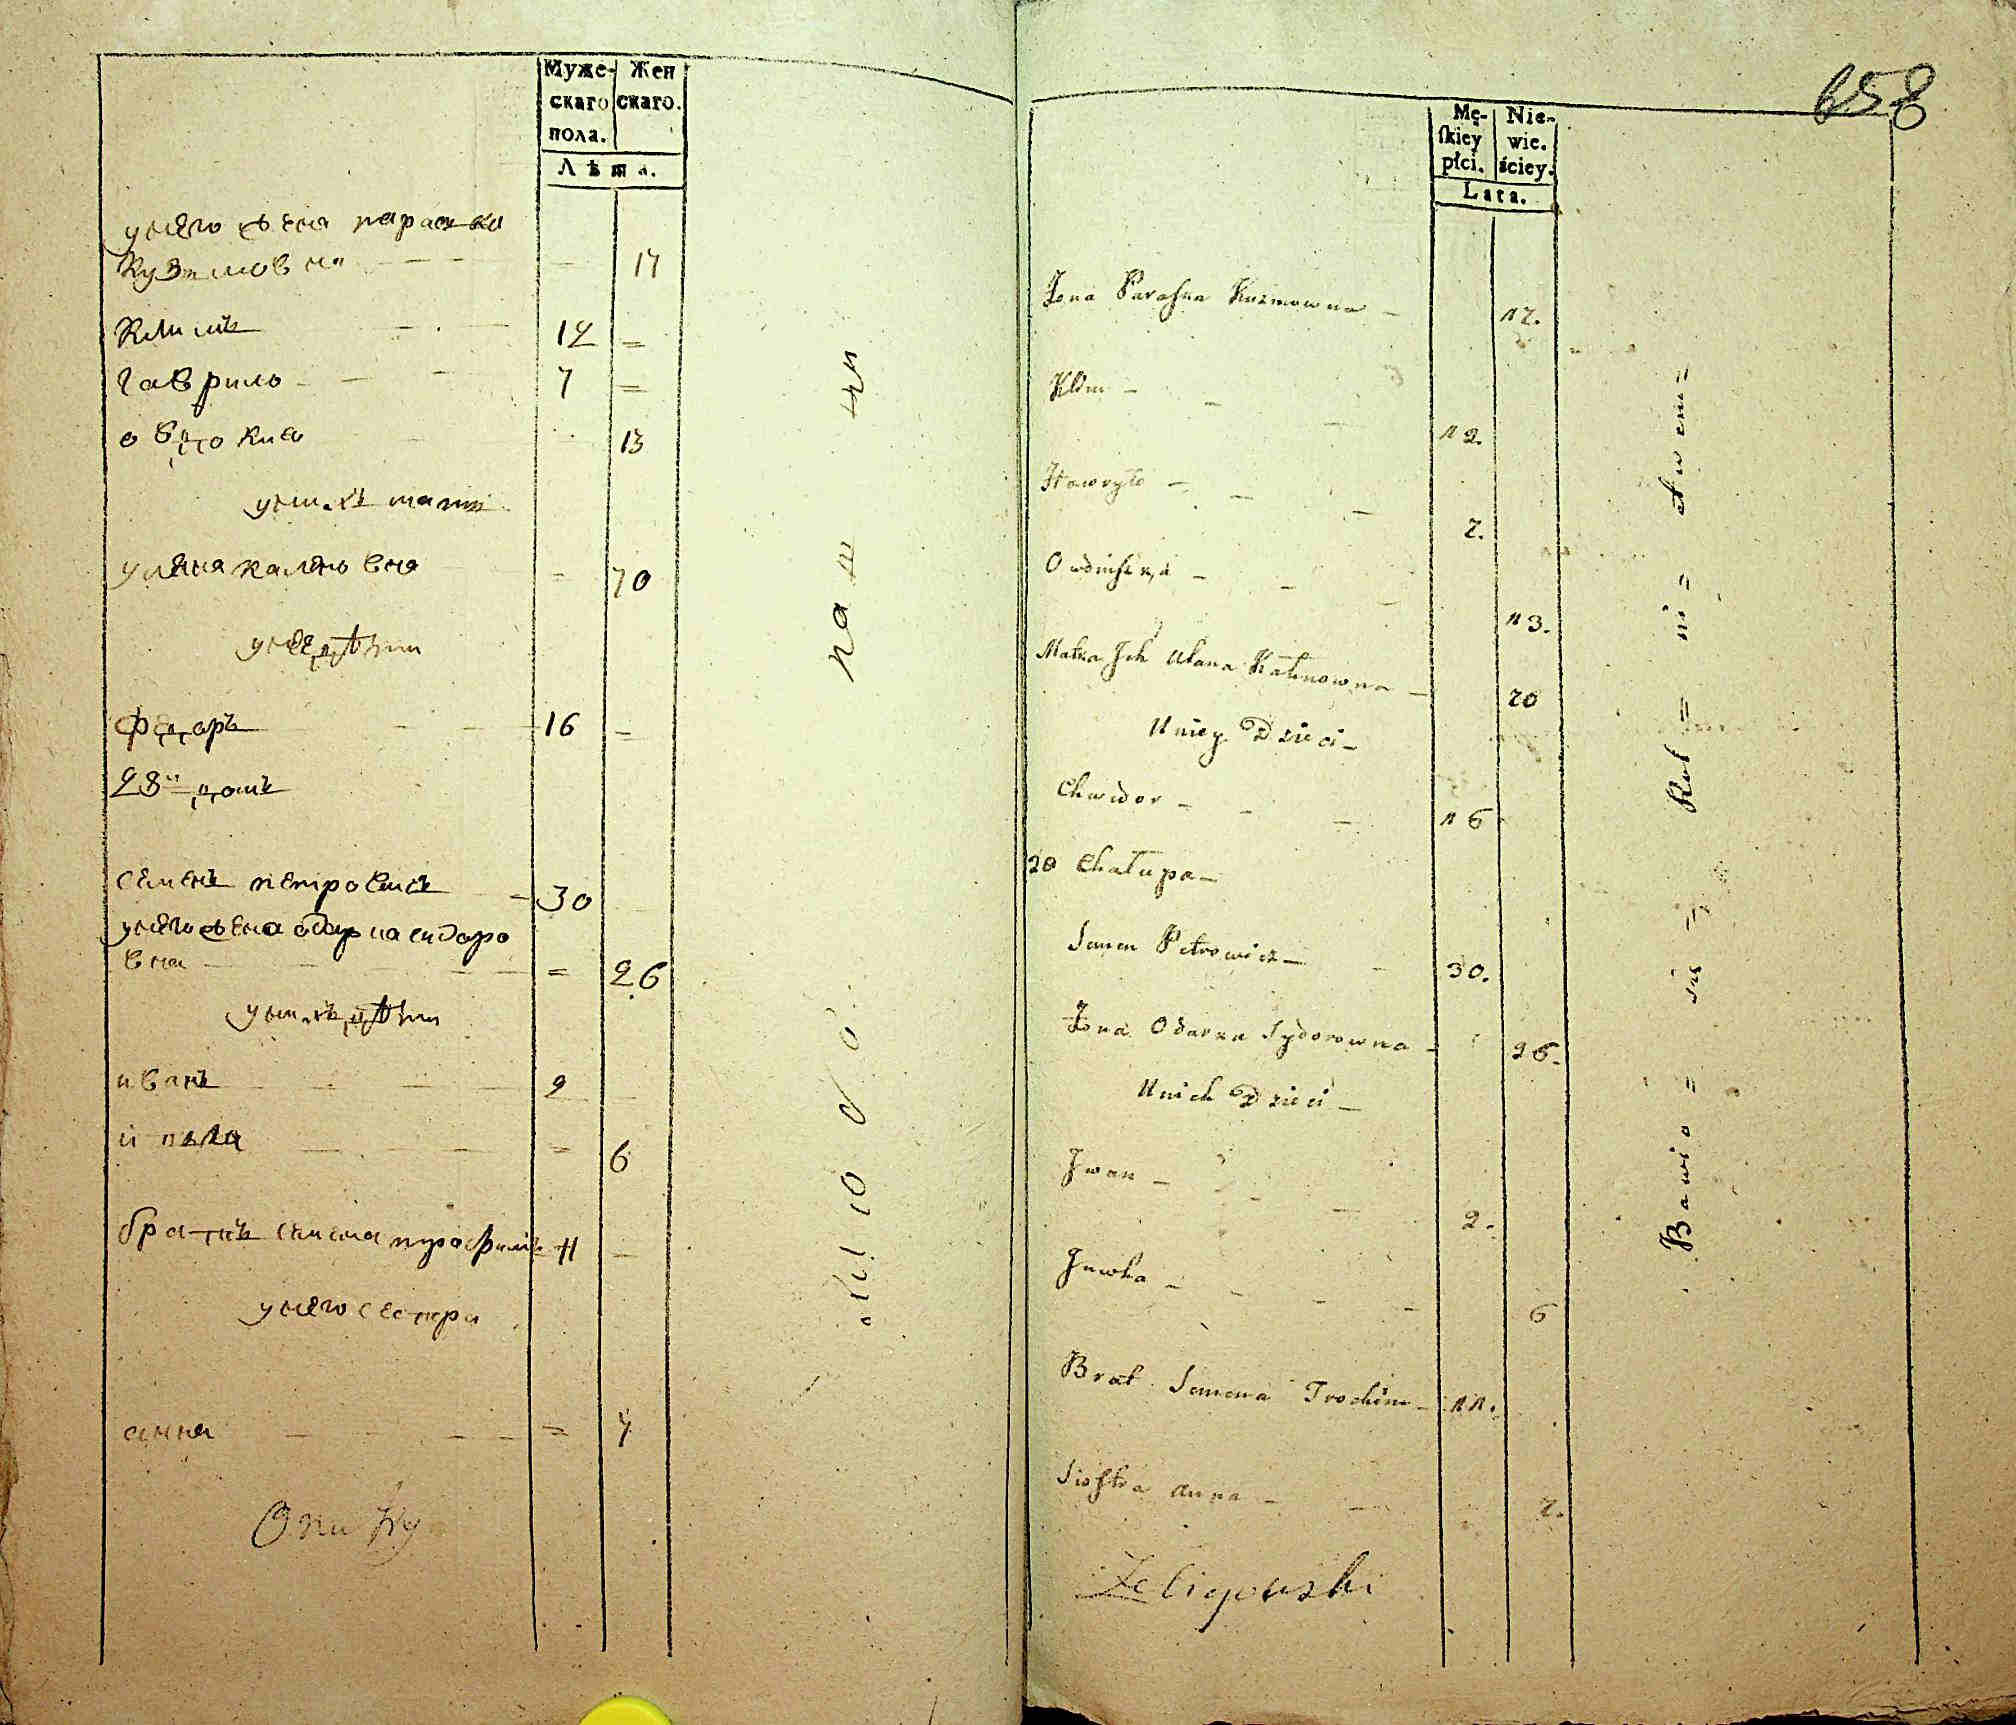 Муже- Жен
скаго скаго.
пола.
Лѣта.
унего жена параска
Кузмовна 17
климъ 12 =
гаврило 7 =
овдокия 13
унихъ мати
уляна калѣновна = 70
унее дѣти
Федоръ 16 =
28й домъ
семенъ петровичъ 30
унего жена одарка сидоро
вна = 26
унихъ дѣти
иванъ 2
ивга = 6
братъ семена трофимъ 11
унего сестра
анна = 7
658
Mę- Nie-
ſkiey wie.
płci. ściey.
Lata.
Żona Paraska Kuzmowna 17.
Klim 12.
Hawryło 7.
13.
Matka Ich Ulana Kalinowna 70
Uniey Dzieci
Chwidor 16
28 Chałupa
Semen Petrowicz 30.
Żona Odarka Sydorowna 26.
Unich Dzieci
Iwan 2.
Jewka 6
Brat Semena Trochim 11.
Siostra Anna 7.
Zeligowski